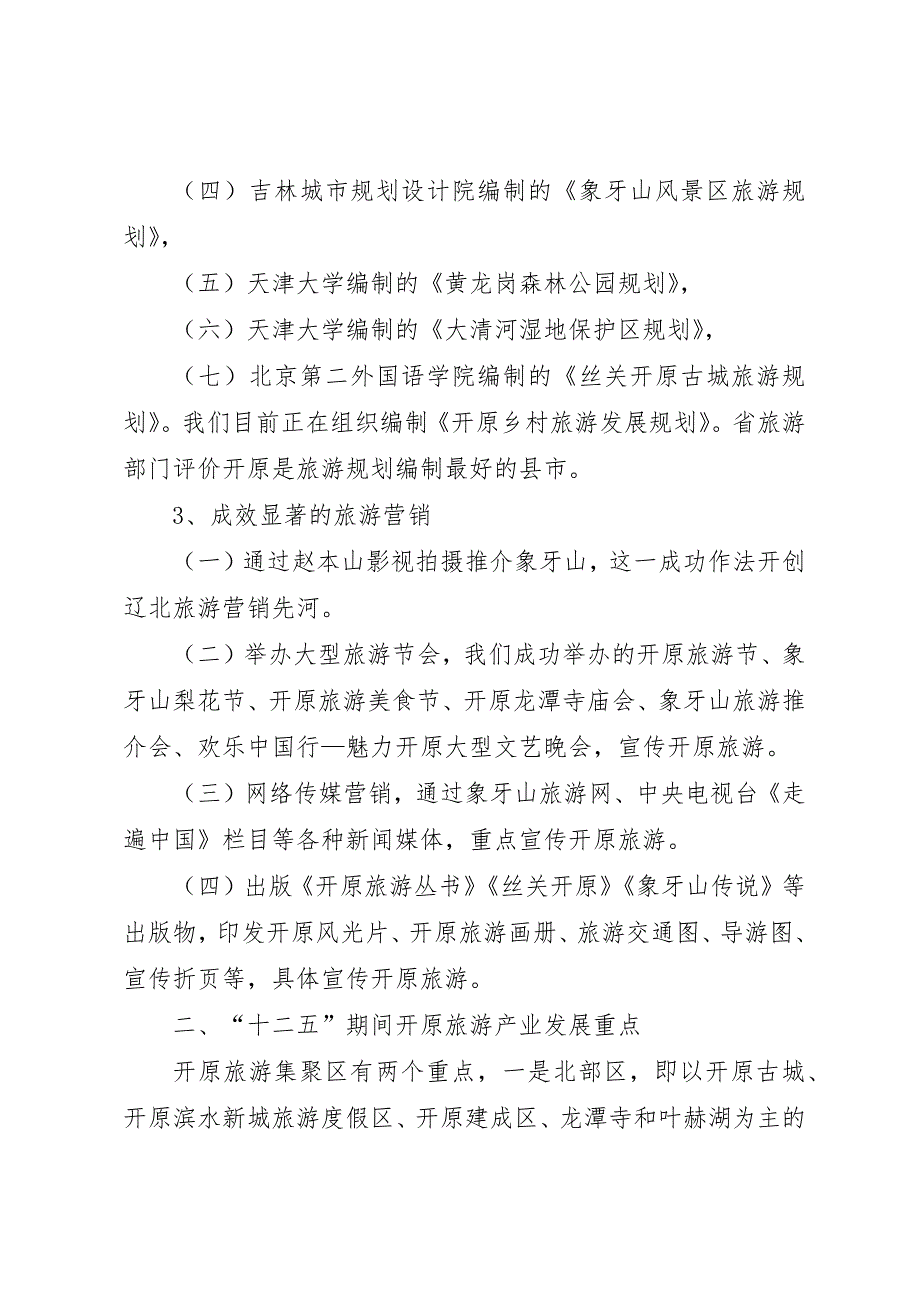 （四）吉林城市规划设计院编制的《象牙山风景区旅游规
划》，
（五）天津大学编制的《黄龙岗森林公园规划》，
（六）天津大学编制的《大清河湿地保护区规划》，
（七）北京第二外国语学院编制的《丝关开原古城旅游规
划》。我们目前正在组织编制《开原乡村旅游发展规划》。省旅游
部门评价开原是旅游规划编制最好的县市。
3、成效显著的旅游营销
（一）通过赵本山影视拍摄推介象牙山，这一成功作法开创
辽北旅游营销先河。
（二）举办大型旅游节会，我们成功举办的开原旅游节、象
牙山梨花节、开原旅游美食节、开原龙潭寺庙会、象牙山旅游推
介会、欢乐中国行—魅力开原大型文艺晚会，宣传开原旅游。
（三）网络传媒营销，通过象牙山旅游网、中央电视台《走
遍中国》栏目等各种新闻媒体，重点宣传开原旅游。
（四）出版《开原旅游丛书》《丝关开原》《象牙山传说》等
出版物，印发开原风光片、开原旅游画册、旅游交通图、导游图、
宣传折页等，具体宣传开原旅游。
二、“十二五”期间开原旅游产业发展重点
开原旅游集聚区有两个重点，一是北部区，即以开原古城、
开原滨水新城旅游度假区、开原建成区、龙潭寺和叶赫湖为主的